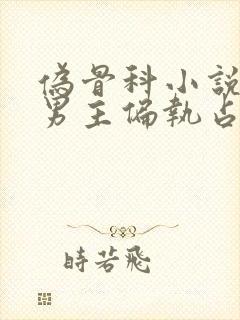 偽骨科小說
男主偏執占
時若飛